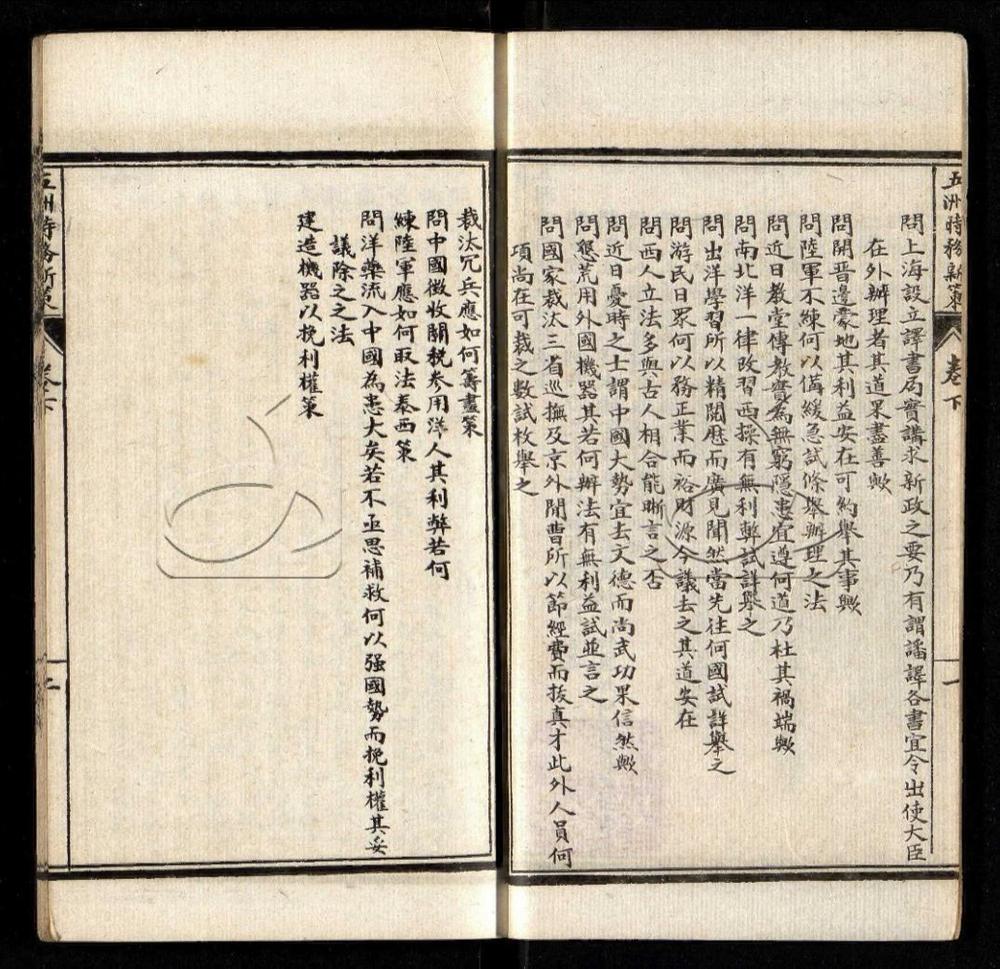 五洲時務新策
卷下
一
問上海設立譯書局實講求新政之要乃有謂譒譯各書宜令出使大臣
在外辦理者其道果盡善歟
問開晋邊蒙地其利益安在可約舉其事歟
問陸軍不練何以備緩急試條舉辦理之法
問近日教堂傳教實為無窮隱患宜遵何道乃杜其禍端歟
問南北洋一律改習西操有無利弊試詳舉之
問出洋學習所以精閱歷而廣見聞然當先往何國試詳舉之
問游民日眾何以務正業而裕財源今議去之其道安在
問西人立法多與古人相合能晰言之否
問近日憂時之士謂中國大勢宜去文德而尚武功果信然歟
問懇荒用外國機器其若何辦法有無利益試並言之
問國家裁汰三省巡撫及京外閒曹所以節經費而拔真才此外人員何
項尚在可裁之數試枚舉之
裁汰冗兵應如何籌畫策
問中國徵收關稅參用洋人其利弊若何
練陸軍應如何取法泰西策
問洋藥流入中國為患大矣若不亟思補救何以强國勢而挽利權其妥
議除之之法
建造機器以挽利權策
五洲時務新策
卷下